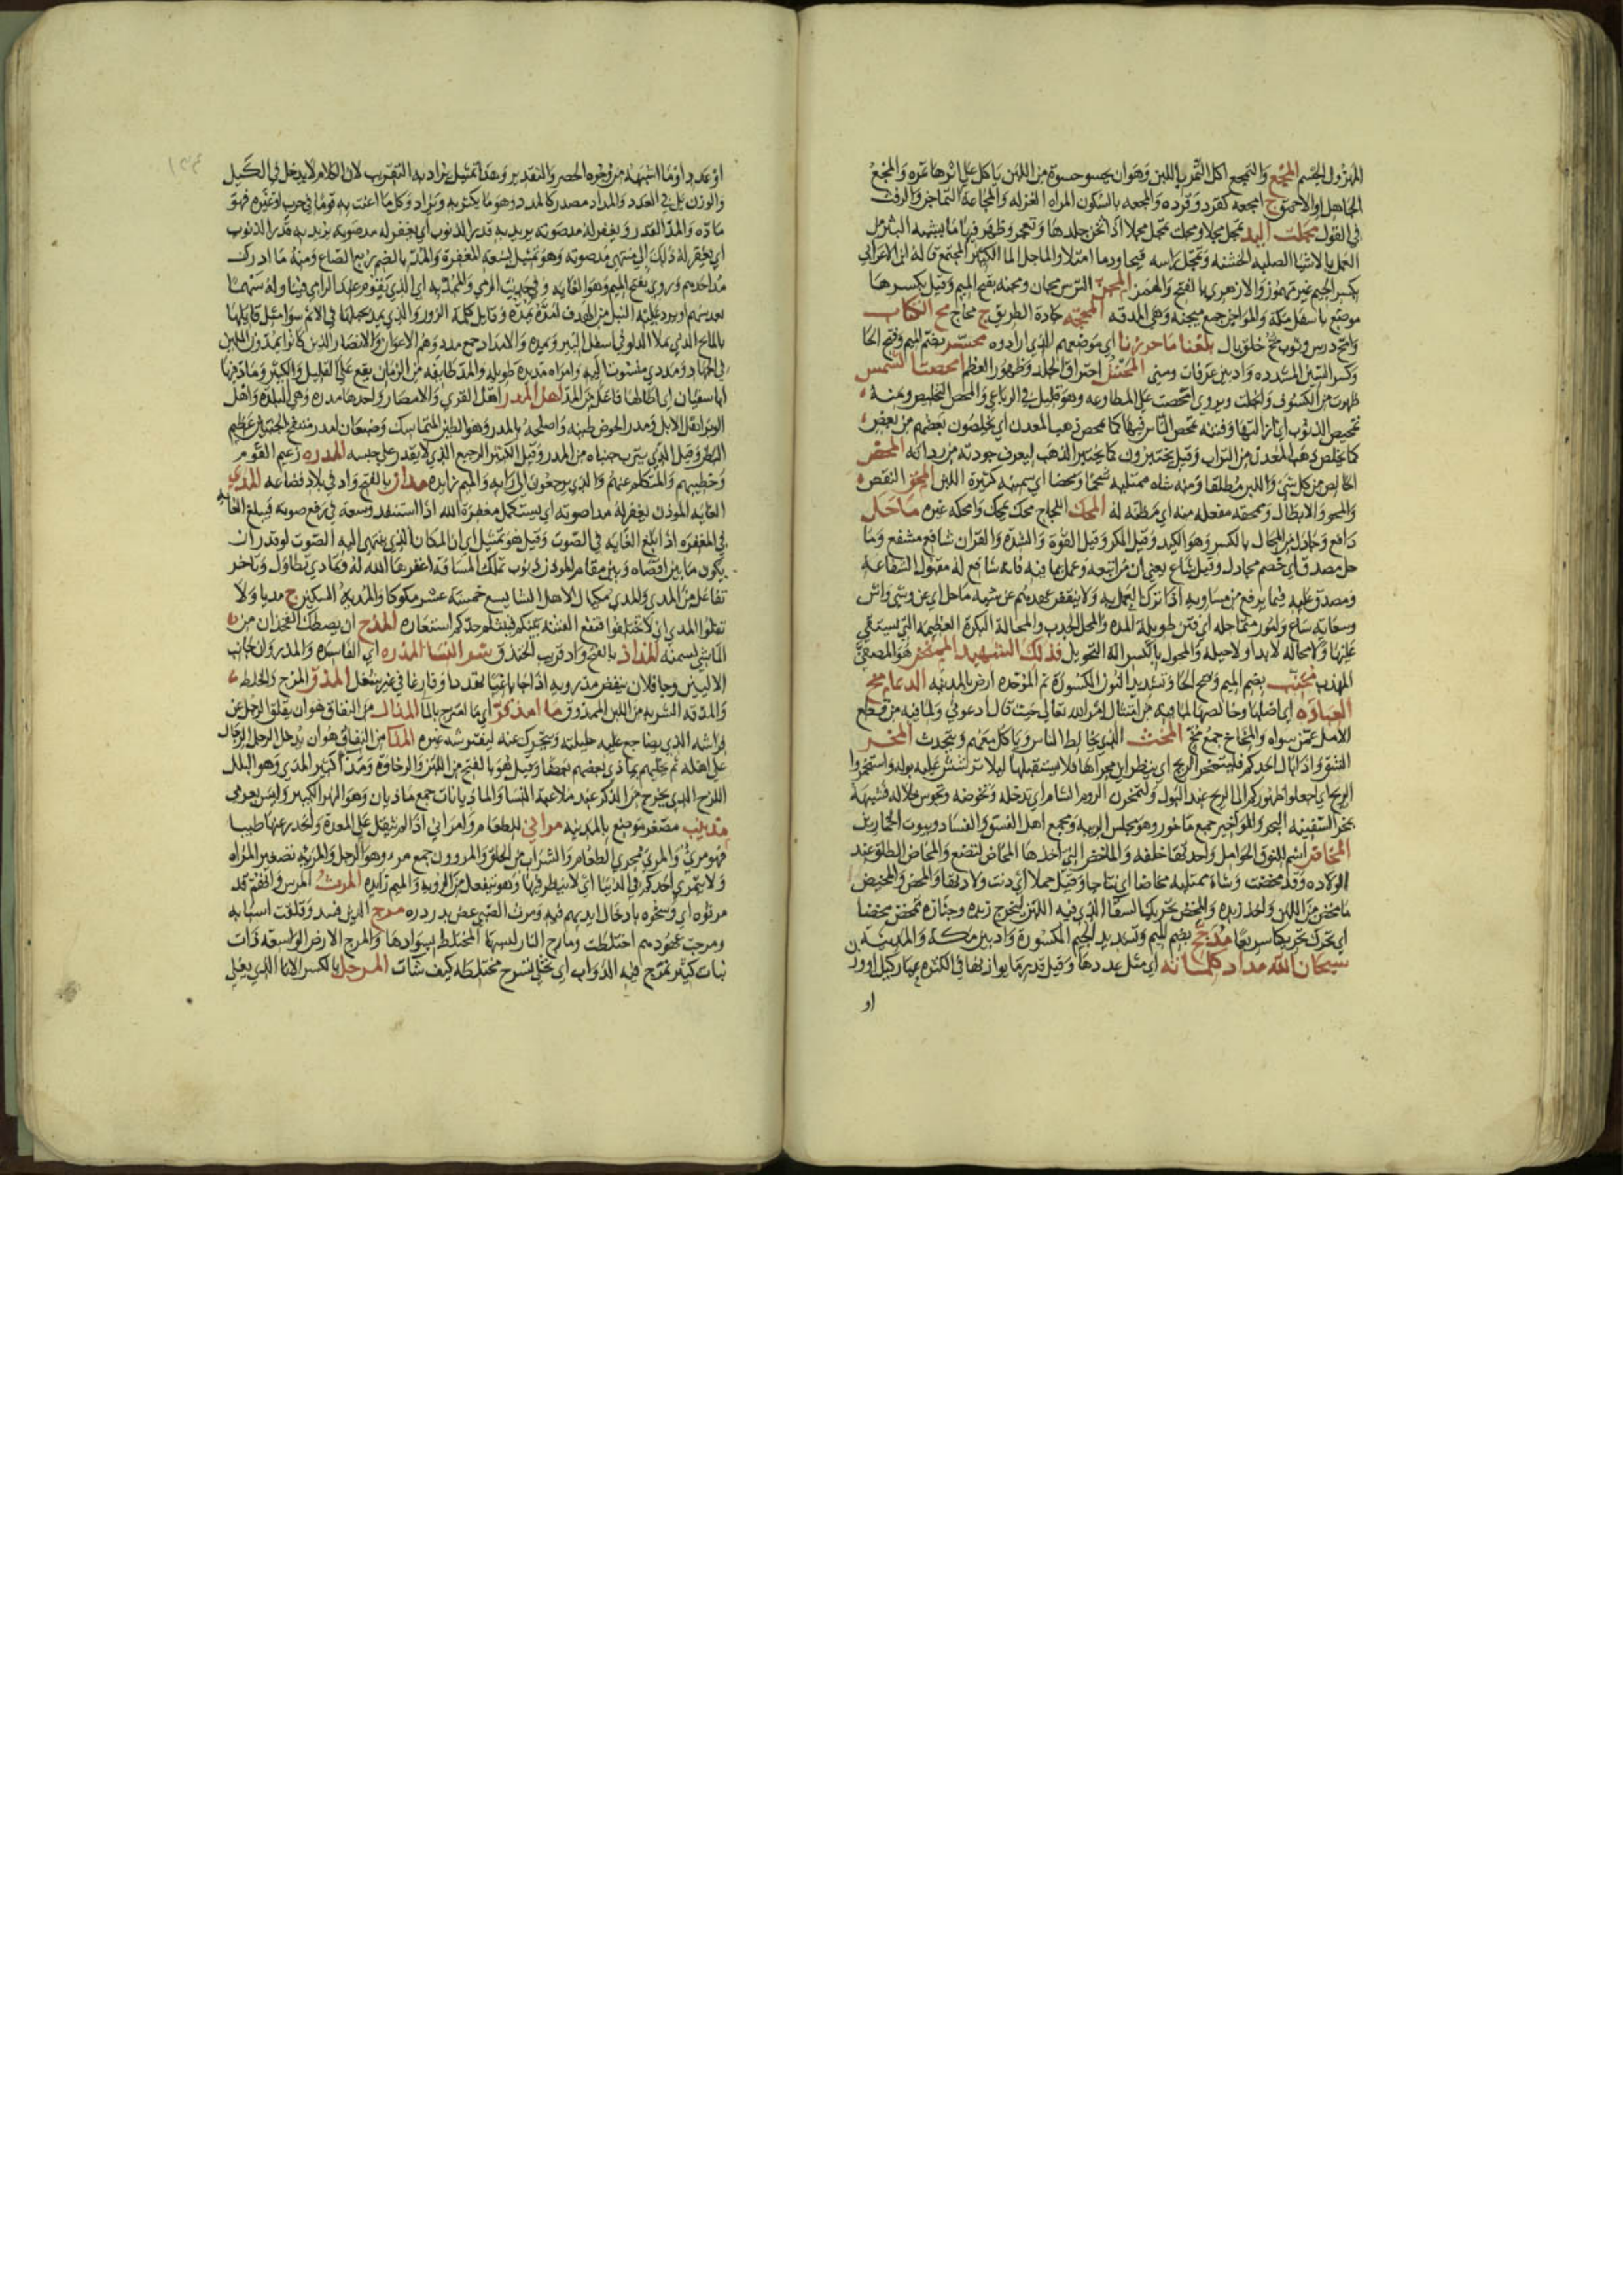 المهزول الجسم المجع والتمجع اكل التمر باللبن وهو ان يحسو حسوة من اللبن ياكل على اثرها تمره والمجع
الجاهل او الاحمق ج امجعه كقرد وقرده والمجعه بالسكون المراه الغزله والمجاعة التماجن والرفث
في القول مجلت اليد تمجل مجلا ومجلت تمجل مجلا اذا ثخن جلدها وتعجر وظهر فيها ما يشبه البثر من
العمل بالاشيا الصلبه الخشنه ومجل راسه قيحا ودما امتلا والماجل الما الكثير المجتمع قاله ابن الاعرابي
بكسر الجيم غير مهموز والازهري بالفتح والهمز المجن الترس مجان ومجنه بفتح الميم وقيل بكسرها
موضع باسفل مكة والمواجن جمع ميجنه وهي المدقه المحجه جادة الطريق ج محاج مح الكتاب
وامح درس وثوب مح خلق بال بلغنا ماحوزنا اي موضعهم الذي ارادوه محسر بضم الميم وفتح الحا
وكسر السين المشدده واد بين عرفات ومنى المحش احتراق الجلد وظهور العظم امحصت الشمس
ظهرت من الكسوف وانجلت ويروى امحصت على المطاوعه وهو قليل في الرباعي والمحص التخليص ومنه
تمحيص الذنوب اي ازالتها وفتنه تمحص الناس فيها كما يمحص ذهب المعدن اي يخلصون بعضهم من بعض
كما يخلص ذهب المعدن من التراب وقيل يختبرون كما يختبر الذهب ليعرف جودته من رداته المحض
الخالص من كل شي واللبن مطلقا ومنه شاه ممتليه شحما ومحضا اي سمينه كثيرة اللبن المحق النقص
والمحو والابطال وممحقه مفعله منه اي مظنه له المحك اللجاج محك يمحك وامحكه غيره ماحل
دافع وجادل من المحال بالكسر وهو الكيد وقيل المكر وقيل القوة والشدة والقران شافع مشفع وما
حل مصدق اي خصم مجادل وقيل ساع يعني ان من اتبعه وعمل بما فيه فانه شافع له مقبول الشفاعة
ومصدق عليه فيما يرفع من مساويه اذا ترك العمل به ولا ينقض عهدهم عن شيمة ماحل اي عن وشي واش
وسعايه ساع وامور متماحله اي فتن طويلة المده والمحل الجدب والمحالة البكرة العظيمه التي يستقى
عليها ولا محاله لا بد او لا حيله والمحول بالكسر اله التحويل فذلك الشهيد الممتحن هو المصفى
المهذب محنب بضم الميم وفتح الحا وتشديد النون المكسورة ثم الموحده ارض بالمدينه الدعا مخ
العباده اي اصلها وخالصها لما فيه من امتثال امر الله تعالى حيث قال ادعوني ولما فيه من قطع
الامل عمن سواه والمخاخ جمع مخ المخث الذي يخالط الناس وياكل معهم ويتحدث المخر
الشق واذا بال احدكم فليتمخر الريح اي ينظر اين مجراها فلا يستقبلها ليلا تترشش عليه بوله واستمخروا
الريح اي اجعلوا ظهوركم الى الريح عند البول ولتمخرن الروم الشام اي تدخله وتخوضه وتجوس خلاله فشبهه
بمخر السفينه البحر والمواخير جمع ماخور وهو مجلس الريبه ومجمع اهل الفسق والفساد وبيوت الخمارين
المخاض اسم للنوق الحوامل واحدتها خلفه والماخض التي اخذها المخاض لتضع والمخاض الطلق عند
الولاده وقد مخضت وشاة ممتليه مخاضا اي نتاجا وقيل حملا اي دنت ولادتها والمخض والمخيض
ما مخض من اللبن واخذ زبده والمخض تحريك السقا الذي فيه اللبن ليخرج زبده وجنازه تمخض مخضا
اي تحرك تحريكا سريعا مدجج بضم الميم وتشديد الجيم المكسورة واد بين مكة والمدينه
سبحان الله مداد كلماته اي مثل عددها وقيل قدر ما يوازيها في الكثره عيار كيل او وزن
او
او عدد او ما اشبهه من وجوه الحصر والتقدير وهذا تمثيل يراد به التقريب لان الكلام لا يدخل في الكيل
والوزن بل في العدد والمداد مصدر كالمدد وهو ما يكثر به ويزاد وكل ما اعنت به قوما في حرب او غيره فهو
ماده والمد القدر ويغفر له مد صوته يريد به قدر الذنوب اي يغفر له مد صوته يريد به قدر الذنوب
اي يغفر له ذلك الى منتهى مد صوته وهو تمثيل لسعة المغفرة والمد بالضم ربع الصاع ومنه ما ادرك
مد احدهم ويروى بفتح الميم وهو الغايه وفي حديث الرمي والممد به اي الذي يقوم عند الرامي فيناوله سهما
بعد سهم او يرد عليه النبل من الهدف امده يمده وقايل كلمة الزور والذي يمد بحبلها في الاثم سوا مثل قايلها
بالماتح الذي يملا الدلو في اسفل البير ويمده والامداد جمع مدد وهم الاعوان والانصار الذين كانوا يمدون المسلمين
في الجهاد ومددي منسوب اليه وامراه مديده طويله والمده طايفه من الزمان يقع على القليل والكثير وماد فيها
ابا سفيان اي اطالها فاعل من المد اهل المدر اهل القرى والامصار واحدها مدره وهي البلده واهل
الوبر اهل الابل ومدر الحوض طينه واصلحه بالمدر وهو الطين المتماسك وضبعان امدر منتفخ الجنبين عظيم
البطن وقيل الذي تترب جنباه من المدر وقيل الكثير الرجيع الذي لا يقدر على حبسه المدره زعيم القوم
وخطيبهم والمتكلم عنهم والذي يرجعون الى رايه والميم زايده مدان بالفتح واد في بلاد قضاعه المدى
الغايه الموذن يغفر له مدا صوته اي يستكمل مغفرة الله اذا استنفد وسعه في رفع صوته فيبلغ الغايه
في المغفره اذا بلغ الغايه في الصوت وقيل هو تمثيل اي ان المكان الذي ينتهي اليه الصوت لو قدر ان
يكون ما بين اقصاه وبين مقام الموذن ذنوب تملا تلك المسافة لغفرها الله له وتمادى تطاول وتاخر
تفاعل من المدى والمدي مكيال لاهل الشام يسع خمسة عشر مكوكا والمدية السكين ج مديا ولا
تفلوا المدى بالاختلاف فتقع الفتنه بينكم فينثلم حدكم استعاره المذح ان يصطك الفخذان من
الماشي لسمنه المذاد بالفتح واد قريب الخندق شر النسا المذره اي الفاسده والمذروان جانبا
الاليتين وجا فلان ينفض مذرويه اذا جا باغيا يتهدد او فارغا في غير شغل المذق المزج والخلط
والمذقه الشربه من اللبن الممذوق ما امذقر اي ما امتزج بالما المذال من النفاق هو ان يقلق الرجل عن
فراشه الذي يضاجع عليه حليلته ويتحرك عنه ليفترشه غيره المذا من النفاق هو ان يدخل الرجل الرجال
على اهله ثم يخليهم يماذي بعضهم بعضا وقيل هو بالفتح من اللين والرخاوه ومذا كثير المذي وهو البلل
اللزج الذي يخرج من الذكر عند ملاعبة النسا والماذيانات جمع ماذيان وهو النهر الكبير وليس بعربي
مذينب مصغر موضع بالمدينه مراني الطعام وامراني اذا لم يثقل على المعدة وانحدر عنها طيبا
فهو مري والمري مجرى الطعام والشراب من الحلق والمروون جمع مرء وهو الرجل والمريه تصغير المراه
ولا يتمرى احدكم في الدنيا اي لا ينظر فيها وهو يتفعل من الرويه والميم زايده المرث المرس وافقتهم قد
مرثوه اي وسخوه بادخال ايديهم فيه ومرث الصبي عض بدردره مرج الدين فسد وقلقت اسبابه
ومرجت عهودهم اختلطت ومارج النار لهبها المختلط بسوادها والمرج الارض الواسعه ذات
نبات كثير تمرج فيه الدواب اي تخلى تسرح مختلطه كيف شات المرجل بالكسر الانا الذي يغلى